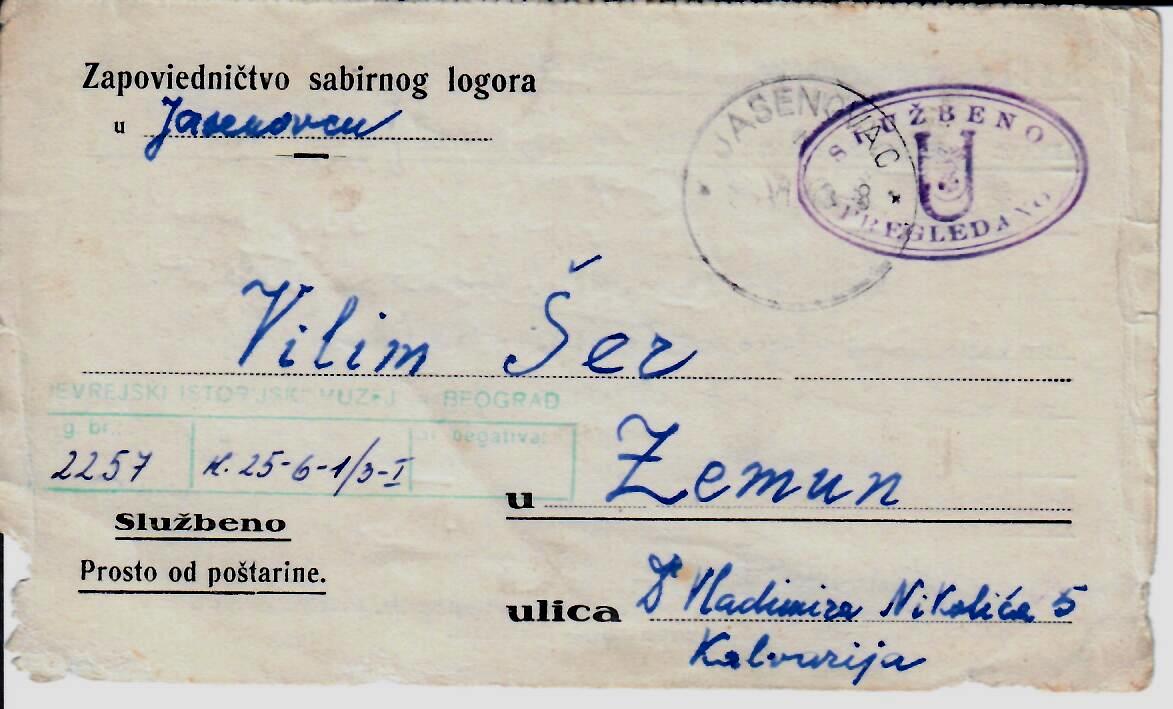 Zapoviedničtvo sabirnog logora
u Jasenovcu
JASENOVAC
SLUŽBENO
U
PREGLEDANO
Vilim Šer
JEVREJSKI ISTORIJSKI MUZEJ - BEOGRAD
g. br.: negativa:
2257 K. 25-6-1/3-I
u Zemun
Službeno
Prosto od poštarine.
ulica Dr Vladimira Nikolića 5
Kalvarija